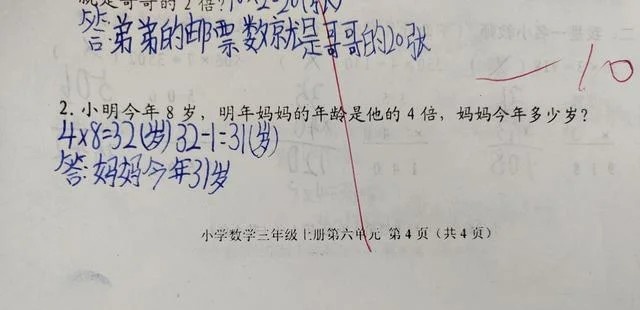 就是哥哥的2倍?
答:弟弟的邮票数就是哥哥的20张
-10
2. 小明今年 8 岁，明年妈妈的年龄是他的 4 倍，妈妈今年多少岁？
4×8=32(岁) 32-1=31(岁)
答:妈妈今年31岁
小学数学三年级上册第六单元 第 4 页（共 4 页）